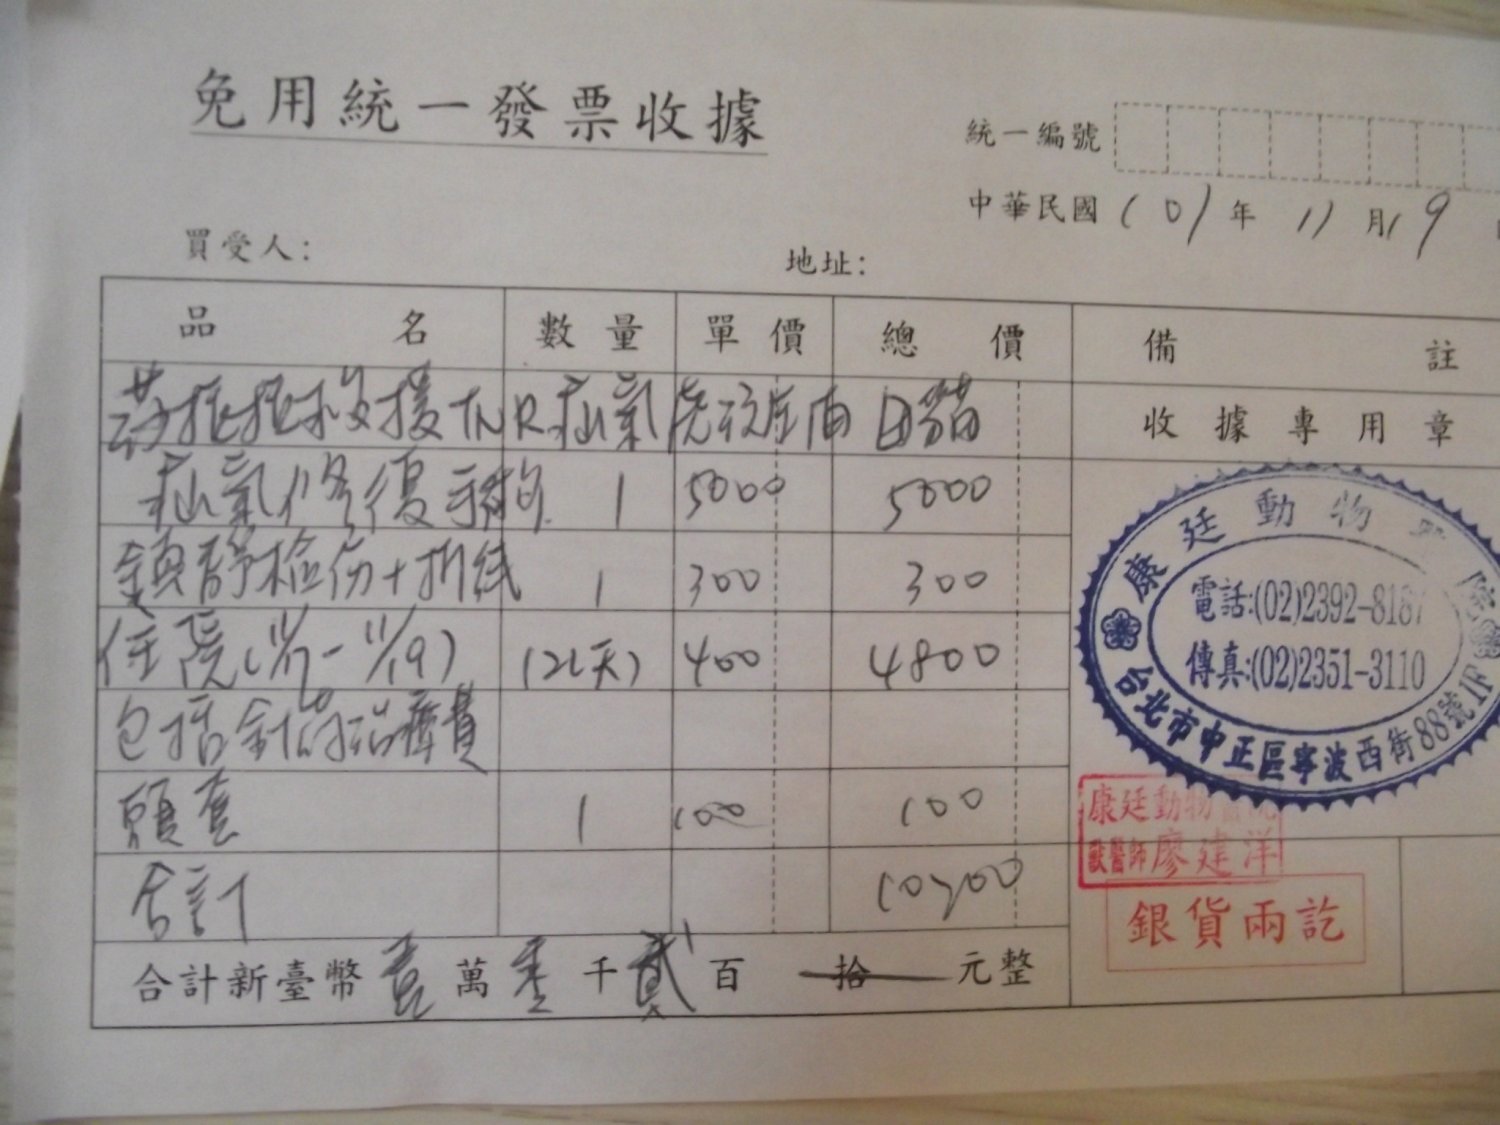 免用統一發票收據
統一編號
中華民國 101 年 11 月 19
買受人:
地址:
品 名 數量 單價 總價 備 註
救援TNR疝氣 貓
收據專用章
疝氣修復手術 1 5000 5000
鎮靜檢傷+拆線 1 300 300
住院(11/7-11/19) 12(天) 400 4800
包括針治療費
頭套 1 100 100
合計 10200
合計新臺幣壹萬零千貳百拾元整
康廷動物
院
電話:(02)2392-8187
傳真:(02)2351-3110
台北市中正區寧波西街88號1F
康廷動物醫院
獸醫師廖建洋
銀貨兩訖